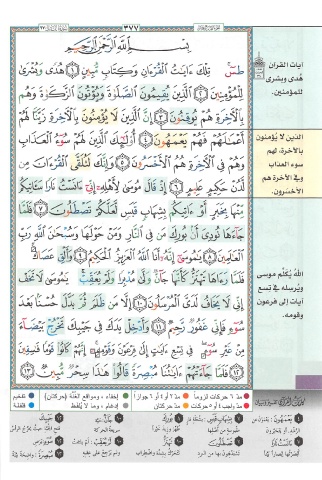 ٣٧٧
بِسْمِ اللَّهِ الرَّحْمَٰنِ الرَّحِيمِ
طسٓ تِلْكَ ءَايَٰتُ ٱلْقُرْءَانِ وَكِتَابٍ مُّبِينٍ ١ هُدًى وَبُشْرَىٰ
لِلْمُؤْمِنِينَ ٢ ٱلَّذِينَ يُقِيمُونَ ٱلصَّلَوٰةَ وَيُؤْتُونَ ٱلزَّكَوٰةَ وَهُم
بِٱلْءَاخِرَةِ هُمْ يُوقِنُونَ ٣ إِنَّ ٱلَّذِينَ لَا يُؤْمِنُونَ بِٱلْءَاخِرَةِ زَيَّنَّا لَهُمْ
أَعْمَٰلَهُمْ فَهُمْ يَعْمَهُونَ ٤ أُو۟لَٰٓئِكَ ٱلَّذِينَ لَهُمْ سُوٓءُ ٱلْعَذَابِ
وَهُمْ فِى ٱلْءَاخِرَةِ هُمُ ٱلْأَخْسَرُونَ ٥ وَإِنَّكَ لَتُلَقَّى ٱلْقُرْءَانَ مِن
لَّدُنْ حَكِيمٍ عَلِيمٍ ٦ إِذْ قَالَ مُوسَىٰ لِأَهْلِهِۦٓ إِنِّىٓ ءَانَسْتُ نَارًا سَـَٔاتِيكُم
مِّنْهَا بِخَبَرٍ أَوْ ءَاتِيكُم بِشِهَابٍ قَبَسٍ لَّعَلَّكُمْ تَصْطَلُونَ ٧ فَلَمَّا
جَآءَهَا نُودِىَ أَنۢ بُورِكَ مَن فِى ٱلنَّارِ وَمَنْ حَوْلَهَا وَسُبْحَٰنَ ٱللَّهِ رَبِّ
ٱلْعَٰلَمِينَ ٨ يَٰمُوسَىٰٓ إِنَّهُۥٓ أَنَا ٱللَّهُ ٱلْعَزِيزُ ٱلْحَكِيمُ ٩ وَأَلْقِ عَصَاكَ
فَلَمَّا رَءَاهَا تَهْتَزُّ كَأَنَّهَا جَآنٌّ وَلَّىٰ مُدْبِرًا وَلَمْ يُعَقِّبْ يَٰمُوسَىٰ لَا تَخَفْ
إِنِّى لَا يَخَافُ لَدَىَّ ٱلْمُرْسَلُونَ ١٠ إِلَّا مَن ظَلَمَ ثُمَّ بَدَّلَ حُسْنًۢا بَعْدَ
سُوٓءٍ فَإِنِّى غَفُورٌ رَّحِيمٌ ١١ وَأَدْخِلْ يَدَكَ فِى جَيْبِكَ تَخْرُجْ بَيْضَآءَ
مِنْ غَيْرِ سُوٓءٍ فِى تِسْعِ ءَايَٰتٍ إِلَىٰ فِرْعَوْنَ وَقَوْمِهِۦٓ إِنَّهُمْ كَانُوا۟ قَوْمًا فَٰسِقِينَ
١٢ فَلَمَّا جَآءَتْهُمْ ءَايَٰتُنَا مُبْصِرَةً قَالُوا۟ هَٰذَا سِحْرٌ مُّبِينٌ ١٣
آيات القرآن
هُدى وبشرى
للمؤمنين.
الذين لا يُؤمنون
بالآخرة، لهم
سوء العذاب
وفي الآخرة هم
الأخسرون.
اللهُ يُكلّم موسى
ويُرسله في تسع
آيات إلى فرعون
وقومه.
تفخيم
قلقلة